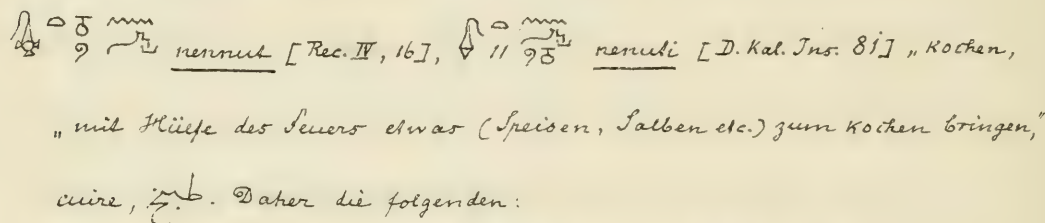 nennut [Rec. IV, 16], nenuti [D. Kal. Ins. 81] „kochen,
„mit Hülfe des Feuers etwas (Speisen, Salben etc.) zum kochen bringen,"
cuire, طبخ. Daher die folgenden: